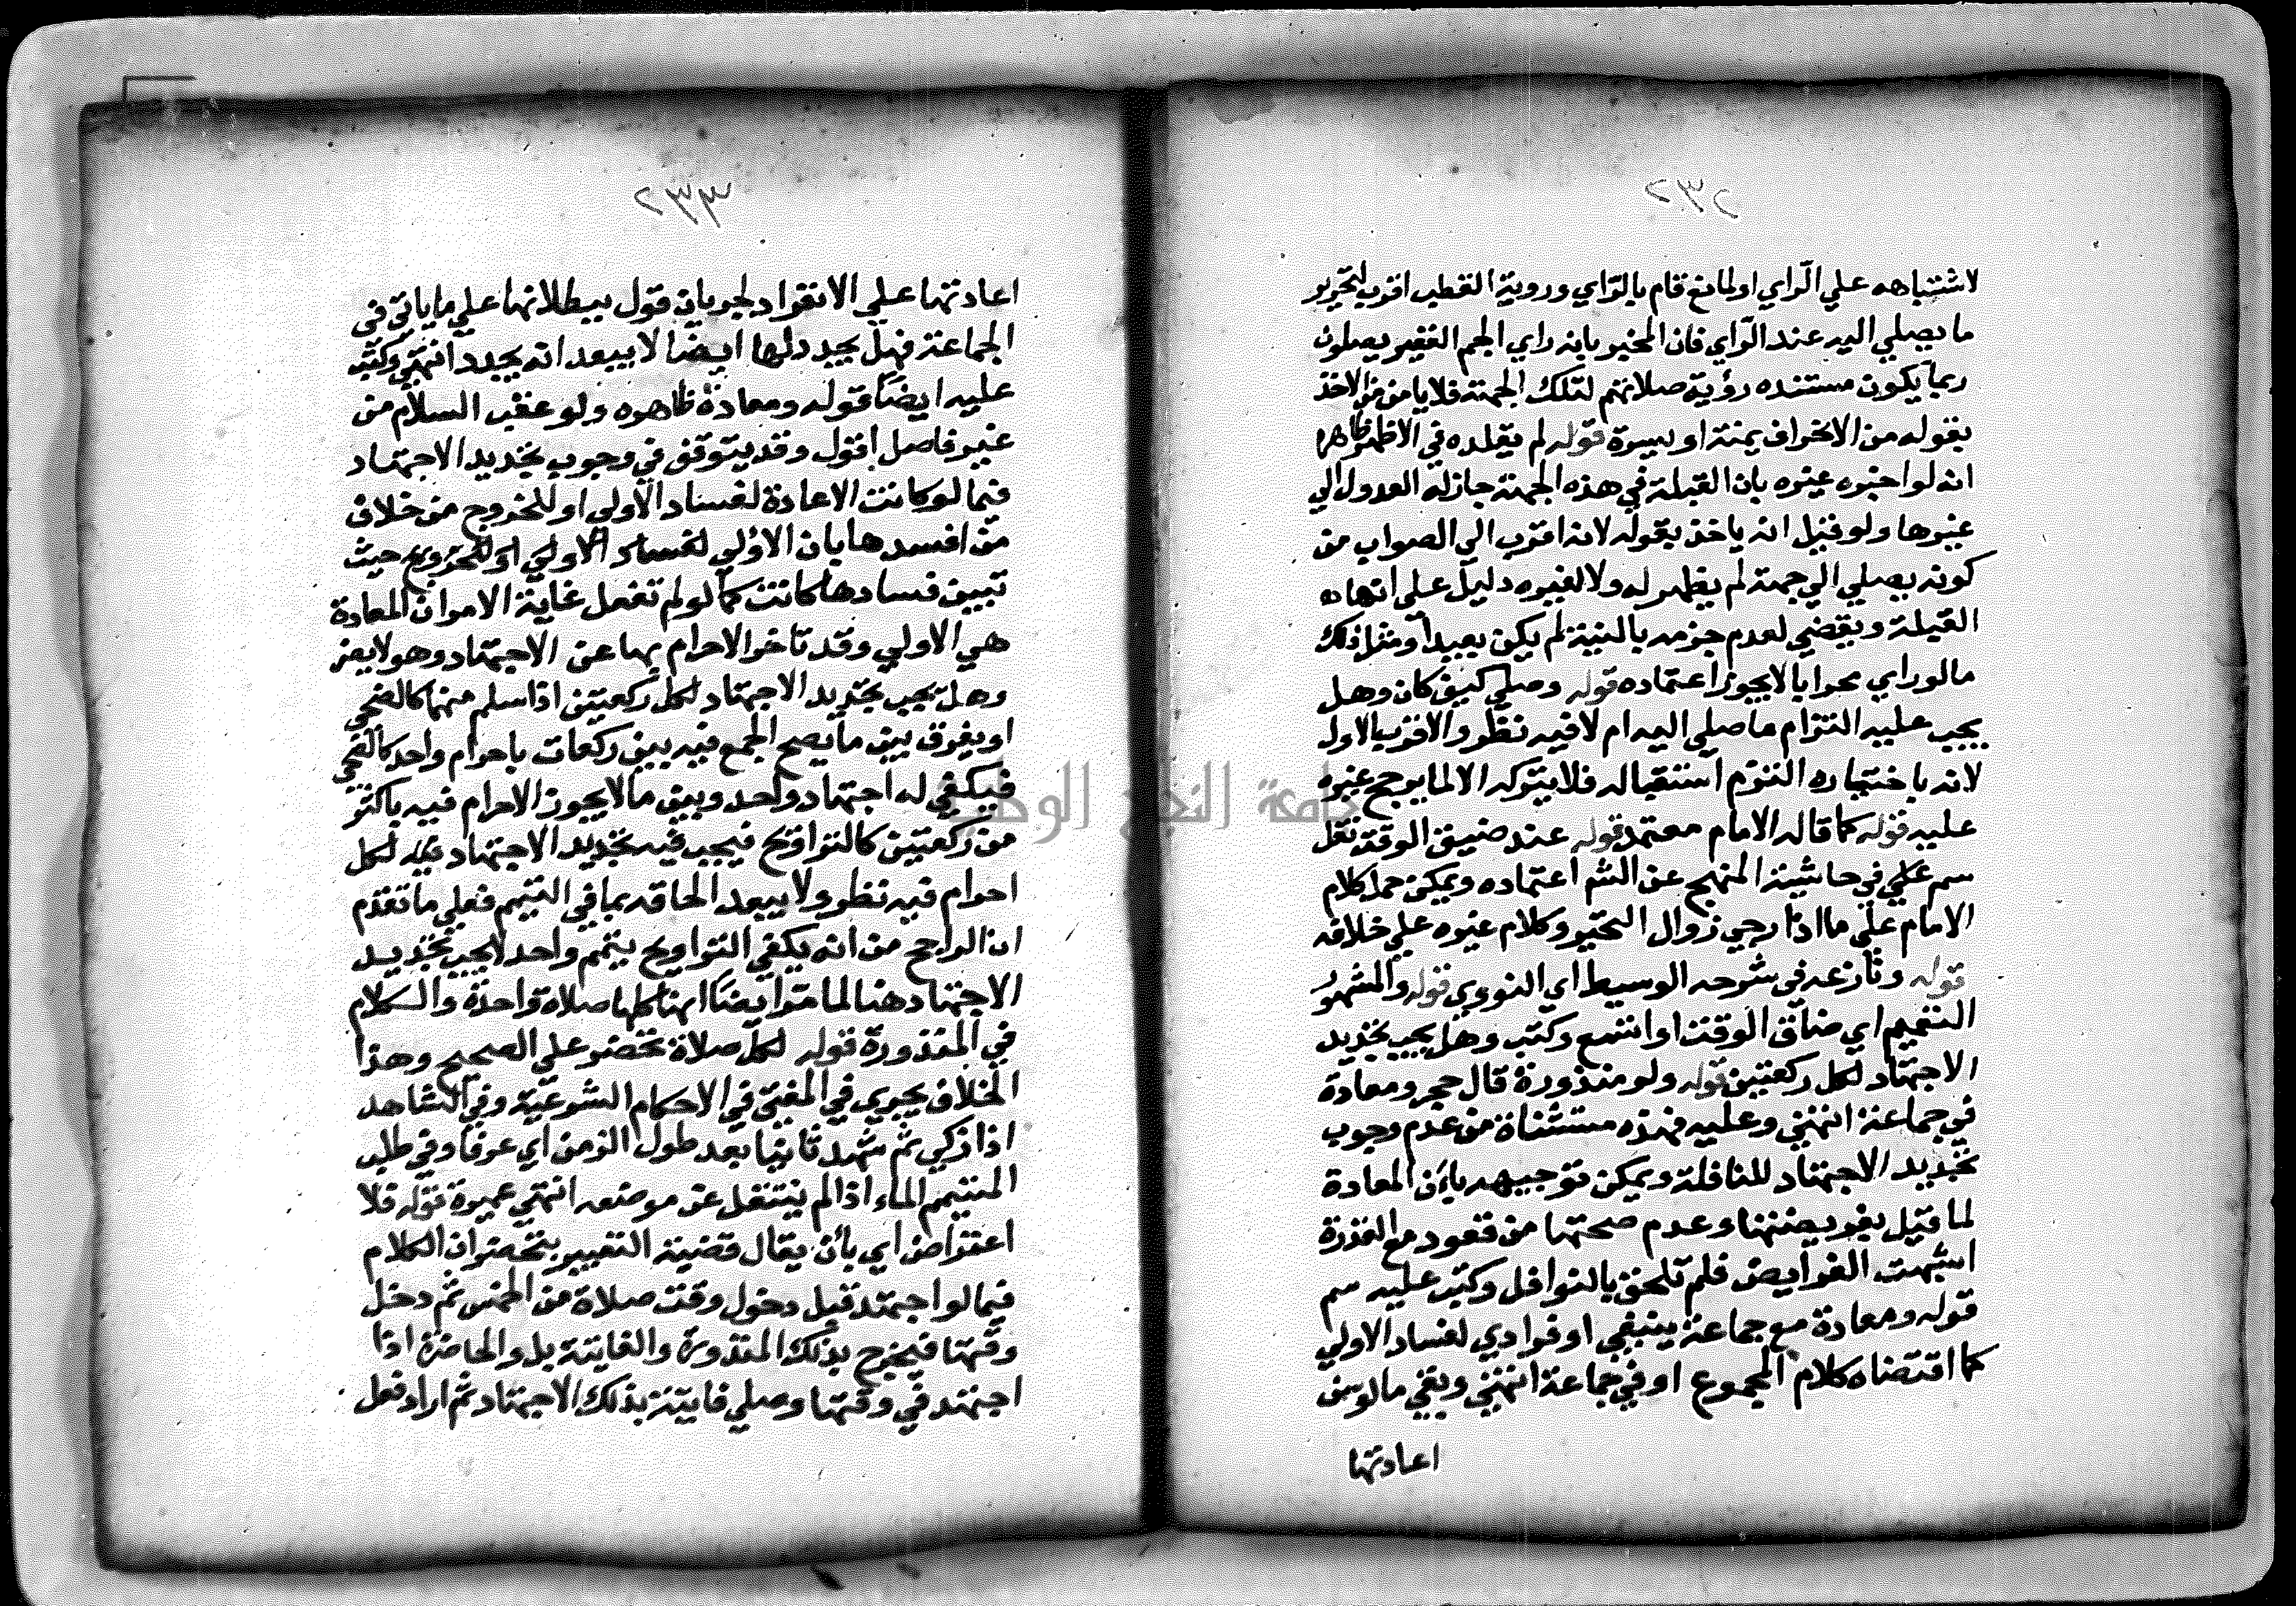 ٢٣٢
لاشتباهه علي الراي او لمانع قام بالراي وروية القطب اقرب لتحرير
ما يصلي اليه عند الراي فان المخبر بانه راي الجم الغفير يصلون
ربما يكون مستنده رؤية صلاتهم لتلك الجهة فلا يامن من الاخذ
بقوله من الانحراف يمنة او يسرة قوله لم يقلده في الاظهر ظاهره
انه لو اخبره غيره بان القبلة في هذه الجهة جاز له العدول الي
غيرها ولو قيل انه ياخذ بقوله لانه اقرب الي الصواب من
كونه يصلي الي جهة لم يظهر له ولا لغيره دليل علي انها
القبلة ويقضي لعدم جزمه بالنية لم يكن بعيدا ومثل ذلك
ما لو راي محرابا لا يجوز اعتماده قوله وصلي كيف كان وهل
يجب عليه التزام ما صلي اليه ام لا فيه نظر والاقرب الاول
لانه باختياره التزم استقباله فلا يتركه الا لما يرجح غيره
عليه قوله كما قاله الامام معتمد قوله عند ضيق الوقت نقل
سم علي في حاشية المنهج عن الشم اعتماده ويمكن حمل كلام
الامام علي ما اذا رجي زوال التحير وكلام غيره علي خلافه
قوله ونازعه في شرحه الوسيط اي النووي قوله والمشهور
التعميم اي ضاق الوقت او اتسع وكتب وهل يجب تجديد
الاجتهاد لكل ركعتين قوله ولو منذورة قال حجر ومعادة
في جماعة انتهي وعليه فهذه مستثناة من عدم وجوب
تجديد الاجتهاد للنافلة ويمكن توجيهه بان المعادة
لما قيل بفرضيتها وعدم صحتها من قعود مع القدرة
اشبهت الفرايض فلم تلحق بالنوافل وكتب عليه سم
قوله ومعادة مع جماعة ينبغي او فرادي لفساد الاولي
كما اقتضاه كلام المجموع او في جماعة انتهي وبقي ما لو سن
اعادتها
٢٣٣
اعادتها علي الانفراد لجريان قول ببطلانها علي ما ياتي في
الجماعة فهل يجدد لها ايضا لا يبعد انه يجدد انتهي وكتب
عليه ايضا قوله ومعادة ظاهره ولو عقب السلام من
غير فاصل اقول وقد يتوقف في وجوب تجديد الاجتهاد
فيما لو كانت الاعادة لفساد الاولي او للخروج من خلاف
من افسدها بان الاولي لفساد الاولي او للخروج حيث
تبين فسادها كانت كما لو لم تفعل غاية الامر ان المعادة
هي الاولي وقد تاخر الاحرام بها عن الاجتهاد وهو لا يضر
وهل يجب تجديد الاجتهاد لكل ركعتين اذا سلم منهما كالضحي
او يفرق بين ما يصح الجمع فيه بين ركعات باحرام واحد كالضحي
فيكفي له اجتهاد واحد وبين ما لا يجوز الاحرام فيه باكثر
من ركعتين كالتراويح فيجب فيه تجديد الاجتهاد لكل
احرام فيه نظر ولا يبعد الحاقه بما في التيمم فعلي ما تقدم
ان الراجح من انه يكفي التراويح بتيمم واحد لا يجب تجديد
الاجتهاد هنا لما مر ايضا انها كلها صلاة واحدة والكلام
في المنذورة قوله لكل صلاة تحضر علي الصحيح وهذا
الخلاف يجري في المفتي في الاحكام الشرعية وفي الشاهد
اذا زكي ثم شهد ثانيا بعد طول الزمن اي عرفا وفي طلب
المتيمم الماء اذا لم ينتقل عن موضعه انتهي عميرة قوله فلا
اعتراض اي بان يقال قضية التعبير بتحضر ان الكلام
فيما لو اجتهد قبل دخول وقت صلاة من الخمس ثم دخل
وقتها فيخرج بذلك المنذورة والفايتة بل والحاضرة اذا
اجتهد في وقتها وصلي فايتة بذلك الاجتهاد ثم اراد فعل
جامعة النجاح الوطنية